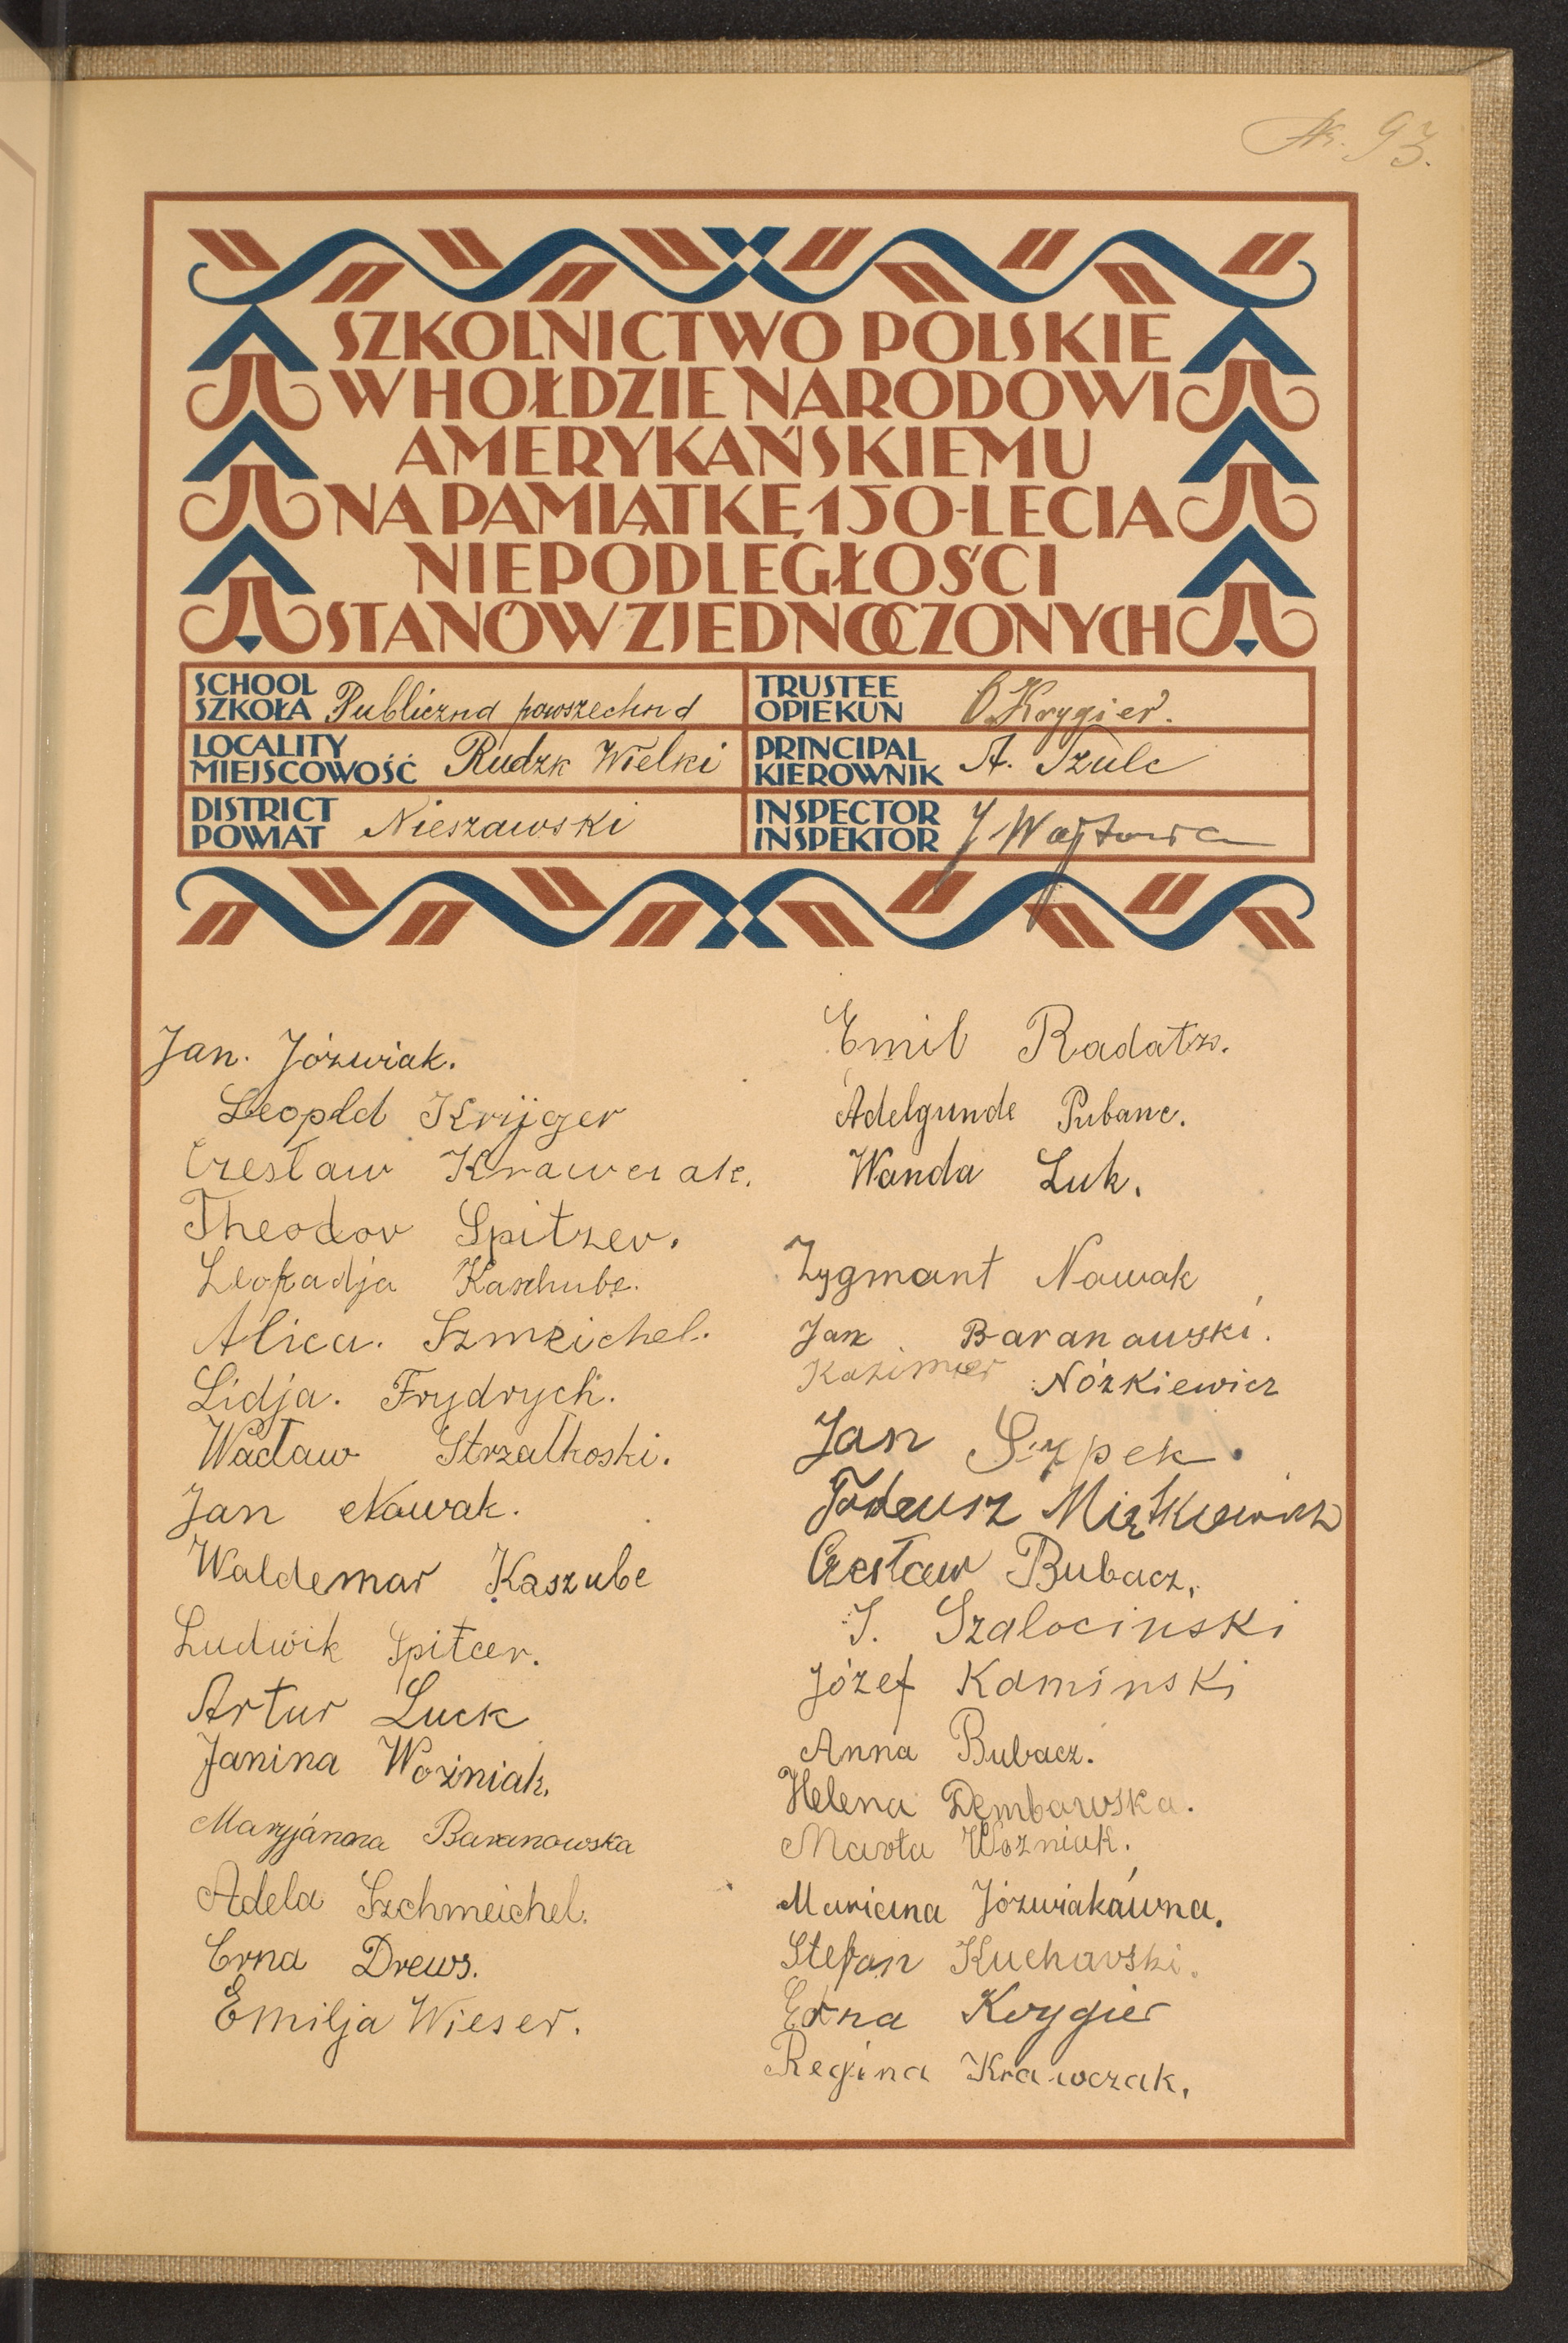 Nr. 93.
SZKOLNICTWO POLSKIE
W HOŁDZIE NARODOWI
AMERYKAŃSKIEMU
NA PAMIĄTKĘ 150-LECIA
NIEPODLEGŁOŚCI
STANÓW ZJEDNOCZONYCH
SCHOOL
SZKOŁA Publiczna powszechna
LOCALITY
MIEJSCOWOŚĆ Rudzk Wielki
DISTRICT
POWIAT Nieszawski
TRUSTEE
OPIEKUN O. Krygier.
PRINCIPAL
KIEROWNIK A. Szulc
INSPECTOR
INSPEKTOR
Jan. Józwiak.
Leopld Krijger
Czesław Krawczak.
Theodor Spitzer.
Leokadja Kaschube.
Alica. Szmeichel.
Lidja. Frydrych.
Wacław Strzałkoski.
Jan Nowak.
Waldemar Kaszube
Ludwik Spitcer.
Artur Luck
Janina Woźniak.
Maryjanna Baranowska
Adela Szchmeichel.
Erna Drews.
Emilja Wieser.
Emil Radatz.
Adelgunde Pubanc.
Wanda Luk.
Zygmont Nowak
Jan Baranowski.
Kazimier Nózkiewicz
Jan Szpek.
Tadeusz Miętkiewicz
Czesław Bubacz.
S. Szalocinski
Józef Kaminski
Anna Bubacz.
Helena Dembowska.
Marta Wozniak.
Mariana Józwiakówna.
Stefan Kucharski.
Edna Krygier
Regina Krawczak.